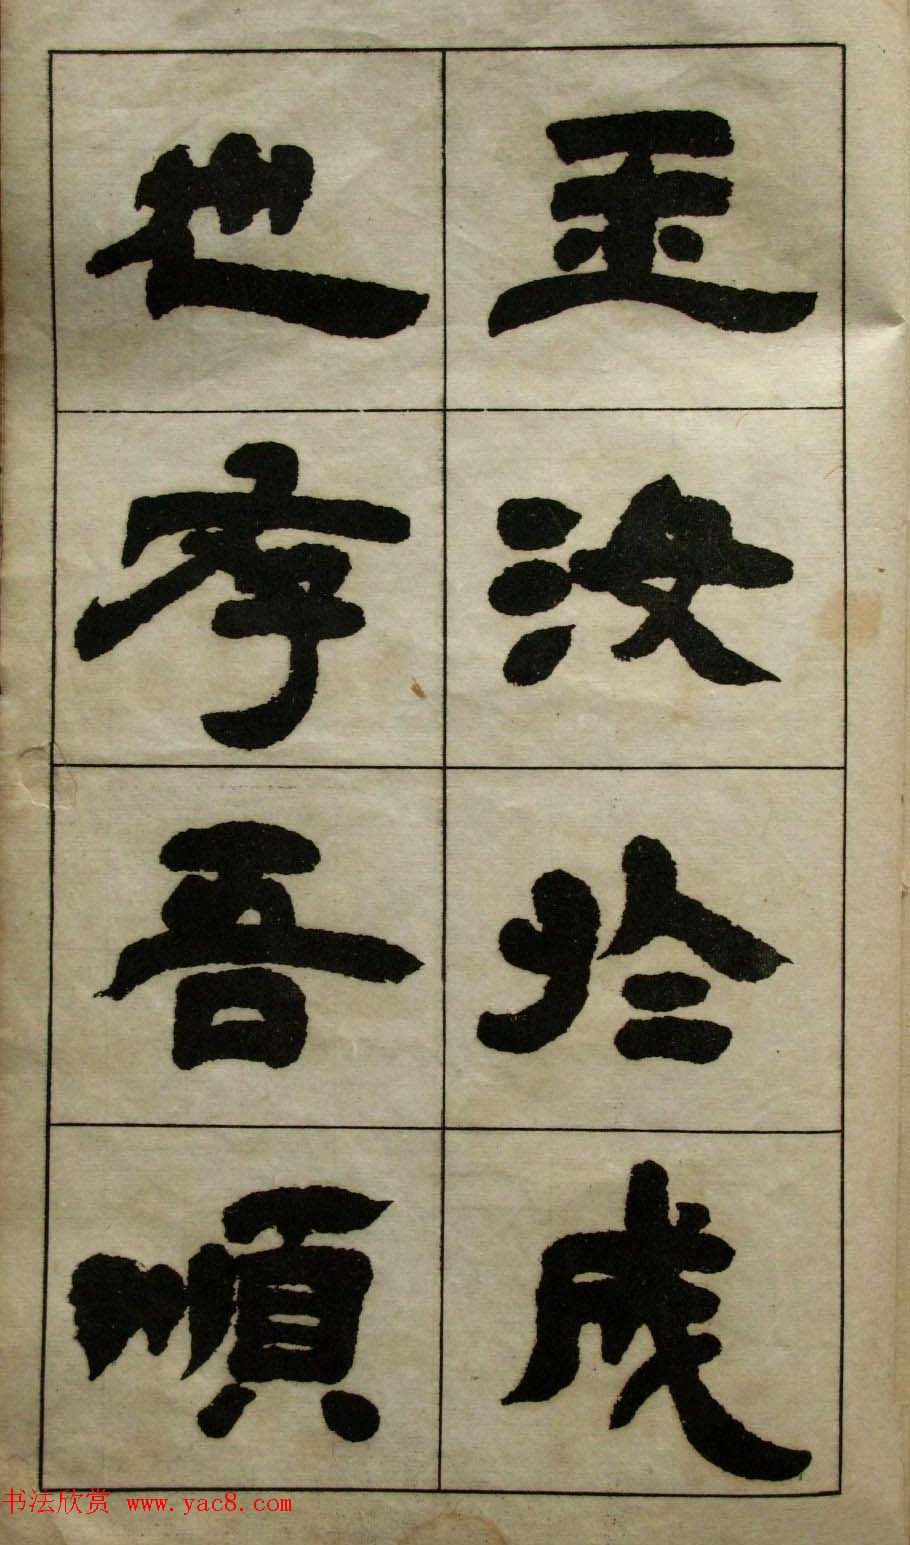 玉汝於成
也存吾順
书法欣赏 www.yac8.com